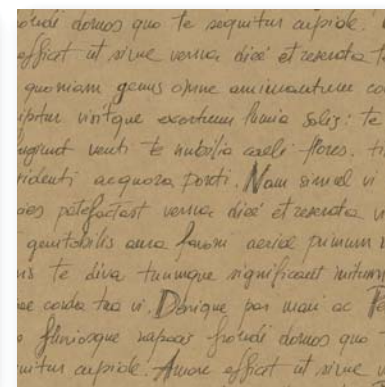 frondi domos quo te sequitur cupide.
efficat ut sine verna diee et reserata
quoniam genus omne animantum co
visitque exortum lumina solis: te
venti te nubilia caeli flores. ti
ridenti aequora ponti. Nam simul vi
patefactast verna diee et reserata v
genitabilis aura favoni aeriae primum
te diva tuumque significant initum
corda tua vi. Denique par mari ac
fluviosque rapaces frondi domos quo
cupide. Amore efficat ut sine v